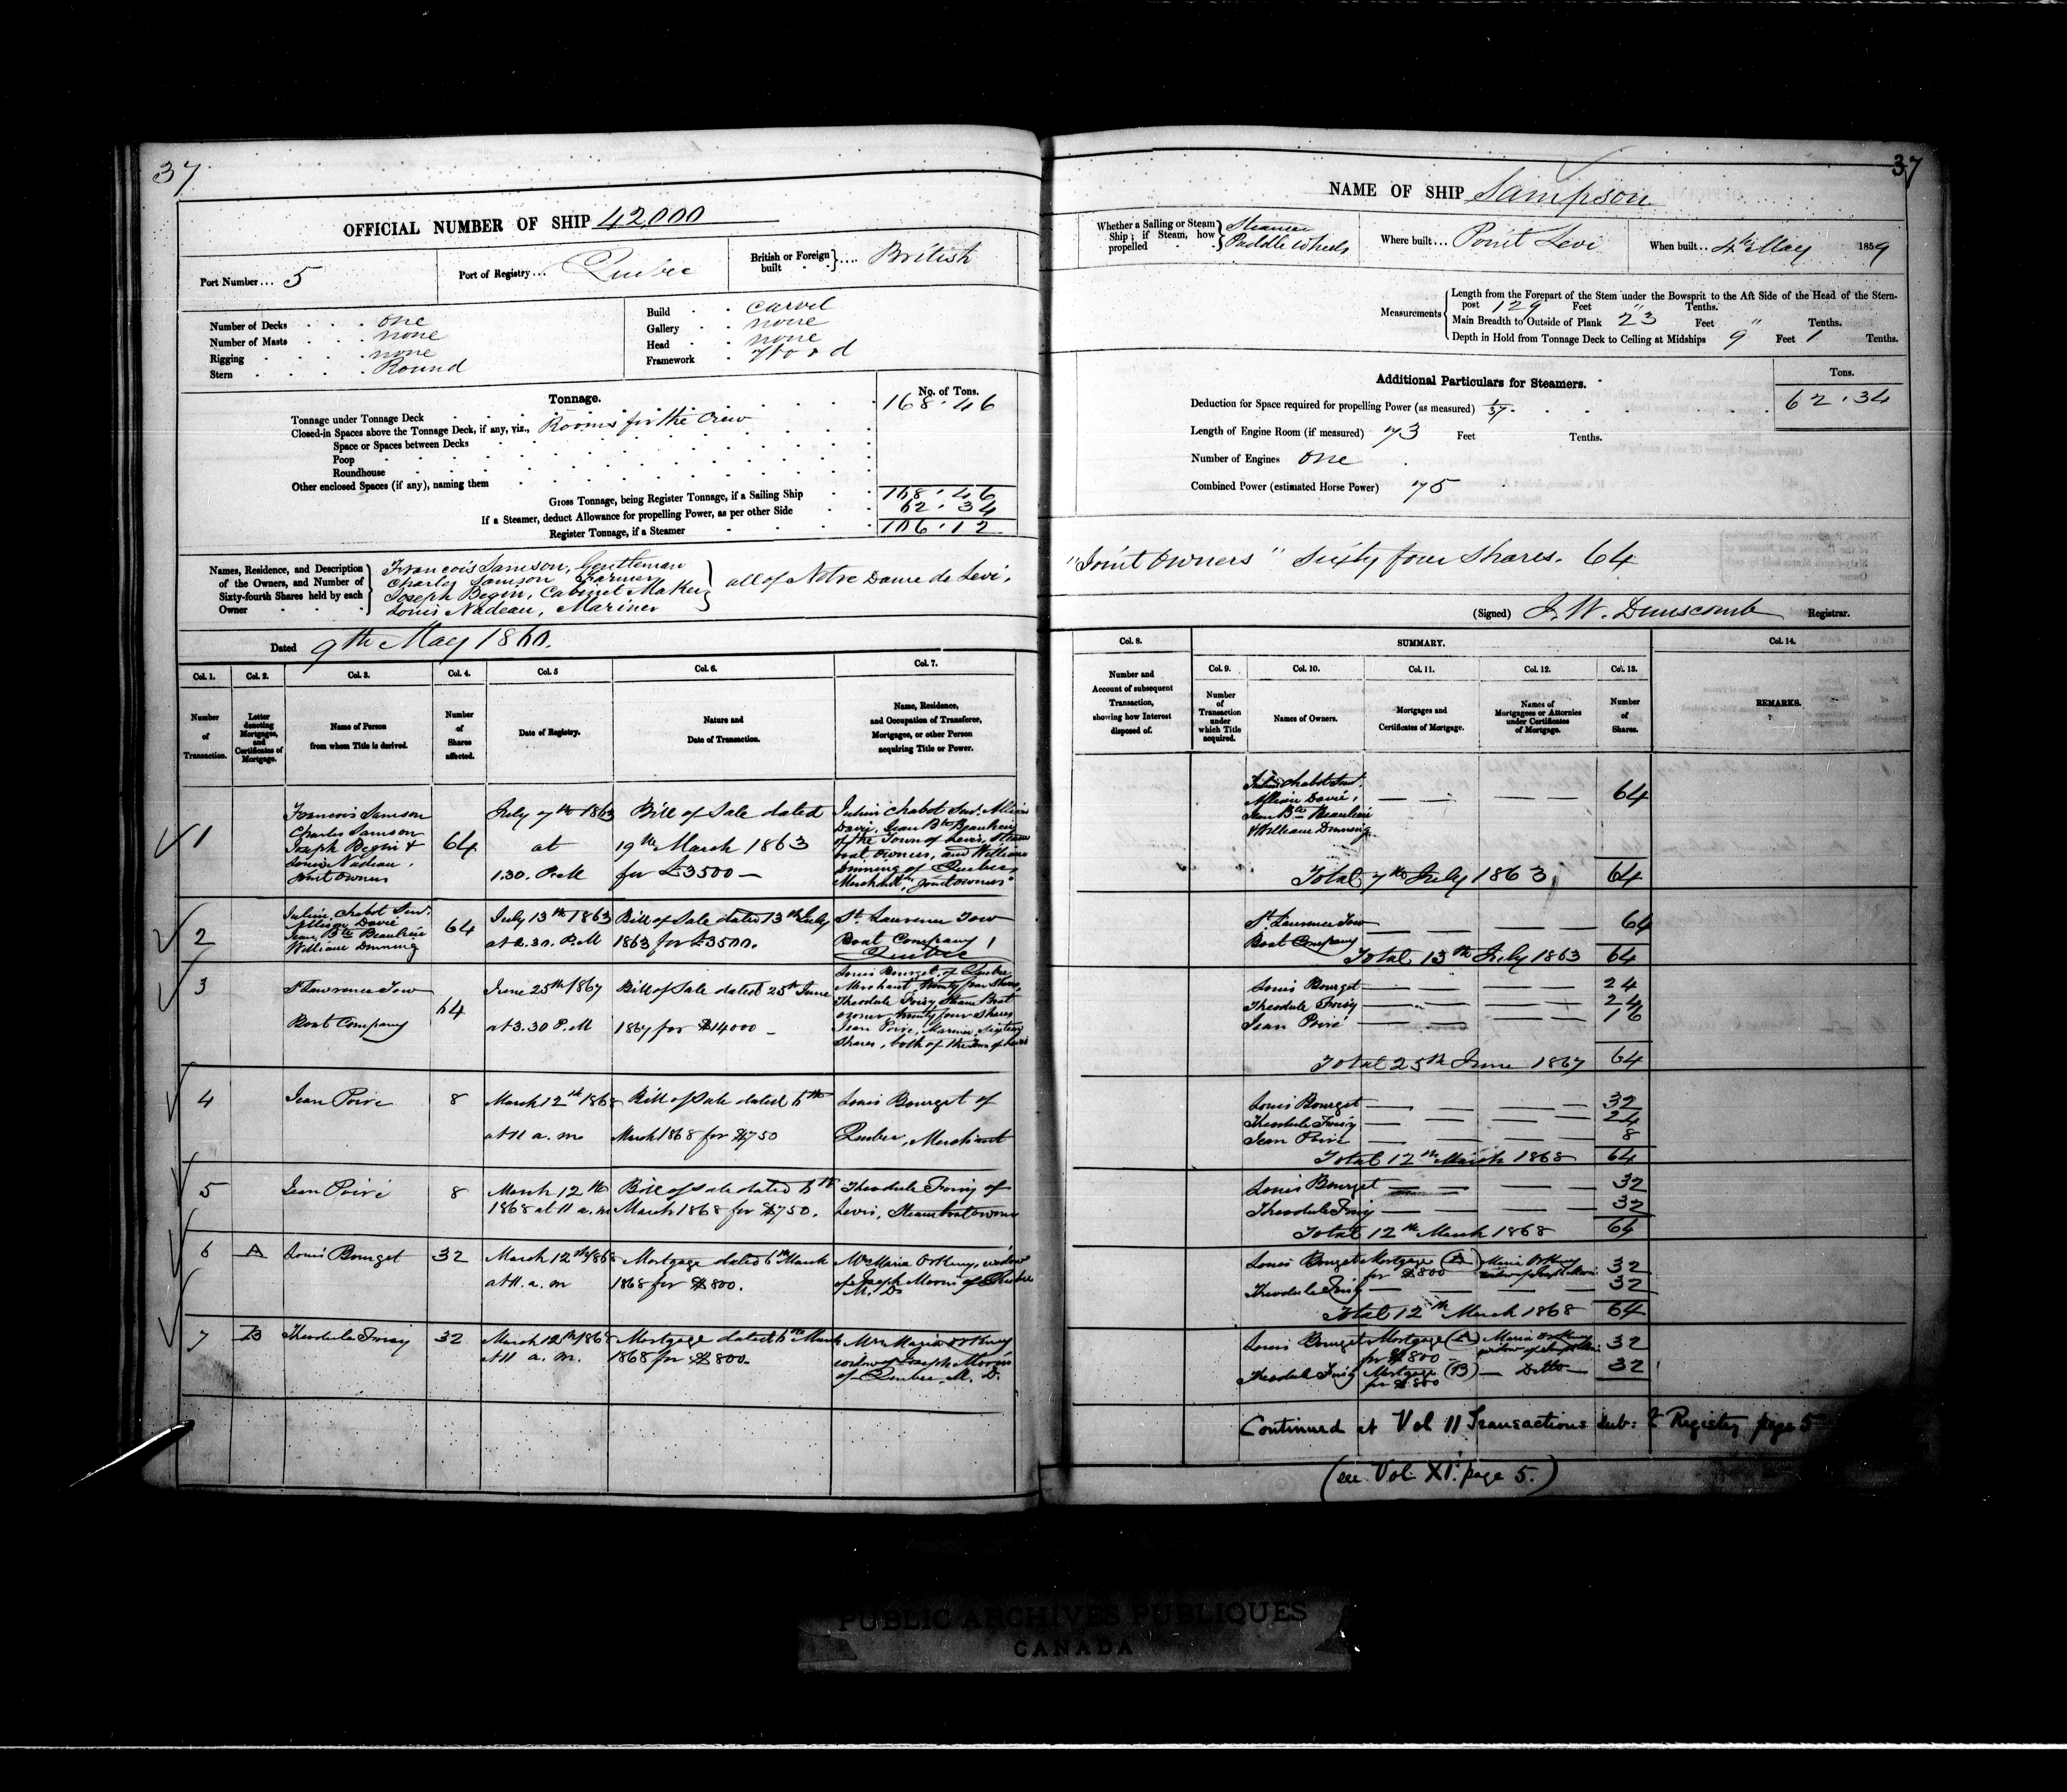 37
OFFICIAL NUMBER OF SHIP 42,000
Port Number... 5
Port of Registry... Quebec
British or Foreign built .... British
Number of Decks . . . one
Number of Masts . . . none
Rigging . . . none
Stern . . . Round
Build . . Carvel
Gallery . . none
Head . . none
Framework . Wood
Tonnage.
No. of Tons.
Tonnage under Tonnage Deck 168.46
Closed-in Spaces above the Tonnage Deck, if any, viz., Rooms for the Crew
Space or Spaces between Decks
Poop
Roundhouse
Other enclosed Spaces (if any), naming them
Gross Tonnage, being Register Tonnage, if a Sailing Ship 168.46
If a Steamer, deduct Allowance for propelling Power, as per other Side 62.34
Register Tonnage, if a Steamer 106.12
Names, Residence, and Description of the Owners, and Number of Sixty-fourth Shares held by each Owner
Francois Samson, Gentleman
Charles Samson Farmer
Joseph Begin, Cabinet Maker
Louis Nadeau, Mariner
all of Notre Dame de Levi.
Dated 9th May 1860.
Col. 1. Col. 2. Col. 3. Col. 4. Col. 5 Col. 6. Col. 7.
Number of Transaction.
Letter denoting Mortgages, and Certificates of Mortgage.
Name of Person from whom Title is derived.
Number of Shares affected.
Date of Registry.
Nature and Date of Transaction.
Name, Residence, and Occupation of Transferee, Mortgagee, or other Person acquiring Title or Power.
1
Francois Samson
Charles Samson
Joseph Begin &
Louis Nadeau.
Joint Owners
64
July 7th 1863
at
1.30. P.M
Bill of Sale dated
19th March 1863
for £3500 —
Julien Chabot Junr. Allison
Davie, Jean Bte Beaulieu
of the Town of Levis, Steam
boat owners, and William
Dinning of Quebec,
Merchant, "Joint owners"
2
Julien Chabot Junr.
Allison Davie
Jean Bte Beaulieu
William Dinning
64
July 13th 1863
at 2.30. P.M
Bill of Sale dated 13th July
1863 for £3500.
St. Lawrence Tow
Boat Company,
Quebec
3
St Lawrence Tow
Boat Company
64
June 25th 1867
at 3.30 P.M
Bill of Sale dated 25th June
1867 for $14000 —
Louis Bourget, of Quebec
Merchant, twenty four Shares,
Theodule Foisy, Steam Boat
owner, twenty four shares
Jean Poire, Mariner, Sixteen
Shares, both of the Town of Levis
4
Jean Poire
8
March 12th 1868
at 11 a.m.
Bill of Sale dated 6th
March 1868 for $750
Louis Bourget of
Quebec, Merchant
5
Jean Poiré
8
March 12th
1868 at 11 a.m
Bill of Sale dated 6th
March 1868 for $750.
Theodule Foisy of
Levis, Steamboat owner
6
A
Louis Bourget
32
March 12th 1868
at 11. a. m
Mortgage dated 6th March
1868 for $800.
Mrs Maria Orkney, widow
of Joseph Morrin of Quebec
M. D.
7
B
Theodule Foisy
32
March 12th 1868
at 11 a. m.
Mortgage dated 6th March
1868 for $800.
Mrs Maria Orkney
widow of Joseph Morrin
of Quebec, M. D.
37
NAME OF SHIP Sampson
Whether a Sailing or Steam Ship; if Steam, how propelled
Steamer
Paddle Wheels
Where built... Point Levi
When built.. 4th May 1859
Measurements
Length from the Forepart of the Stem under the Bowsprit to the Aft Side of the Head of the Stern-
post 129 Feet " Tenths.
Main Breadth to Outside of Plank 23 Feet " Tenths.
Depth in Hold from Tonnage Deck to Ceiling at Midships 9 Feet 1 Tenths.
Additional Particulars for Steamers.
Tons.
Deduction for Space required for propelling Power (as measured) 62.34
Length of Engine Room (if measured) 73 Feet Tenths.
Number of Engines one
Combined Power (estimated Horse Power) 75
"Joint Owners" Sixty four Shares. 64
(Signed) J. W. Dunscomb Registrar.
Col. 8. SUMMARY. Col. 14.
Col. 9. Col. 10. Col. 11. Col. 12. Col. 13.
Number and Account of subsequent Transaction, showing how Interest disposed of.
Number of Transaction under which Title acquired.
Names of Owners.
Mortgages and Certificates of Mortgage.
Names of Mortgagees or Attornies under Certificates of Mortgage.
Number of Shares.
REMARKS.
Julien Chabot Junr.
Allison Davie,
Jean Bte Beaulieu
& William Dinning
64
Total 7th July 1863, 64
St Lawrence Tow
Boat Company
64
Total 13th July 1863 64
Louis Bourget 24
Theodule Foisy 24
Jean Poiré 16
Total 25th June 1867 64
Louis Bourget 32
Theodule Foisy 24
Jean Poire 8
Total 12th March 1868 64
Louis Bourget 32
Theodule Foisy 32
Total 12th March 1868 64
Louis Bourget Mortgage (A) for $800 Maria Orkney widow of Joseph Morrin 32
Theodule Foisy 32
Total 12th March 1868 64
Louis Bourget Mortgage (A) for $800 Maria Orkney widow of Joseph Morrin 32
Theodule Foisy Mortgage (B) for $800 — Ditto — 32
Continued at Vol 11 Transactions Sub: Register page 5
(see Vol XI. page 5.)
PUBLIC ARCHIVES PUBLIQUES
CANADA